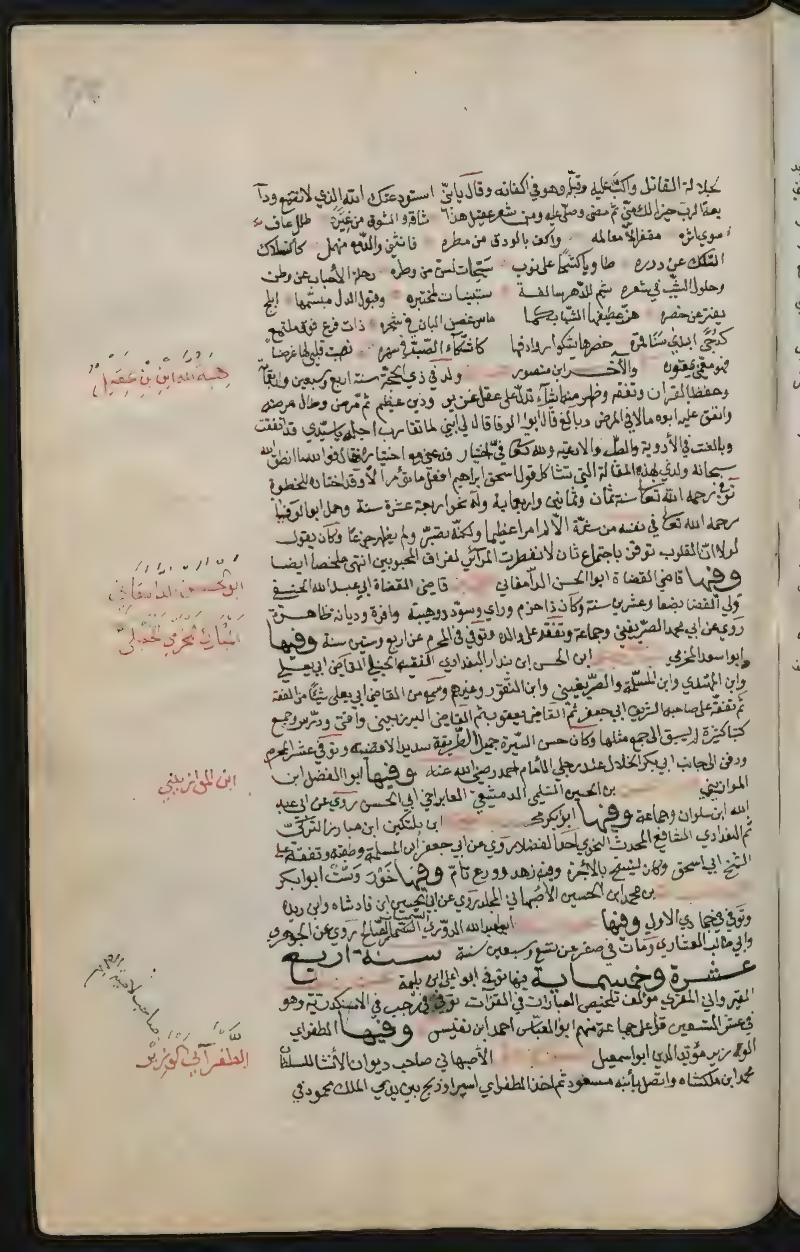 بجلالة القاتل واكب عليه وقبله وهو في اكفانه وقال يابني استودعتك الله الذي لا تضيع ودا
يعه الرب خير لك مني ثم مضى وصلى عليه ومن شعر عقيل هذا شاقه والشوق من غيره طلل عاف
سوى اثره مقفر الا معالمه واكف بالودق من مطره فانثنى والدمع منهمل كانسلاك
السلك عن درره طاويا كشحا على نوب سبحات لسن من وطره رحلة الاحباب عن وطن
وحلول الشيب في شعره شيم للدهر سالفة مستبينات لمختبره وقبول الدل مبسمها ابلج
يفتر عن خصره هز عطفيها الشباب كما ماس غصن البان في شجره ذات فرع فوق ملتمع
كدجى ابدى سنا قمره خصرها يشكو روادفها كاشتكاء الصب في سهره نصبت قلبي لها غرضا
فهو مصمى بمعتوره والآخر ابن منصور ولد في ذي الحجة سنة اربع وسبعين واربعمائة
وحفظ القران وتفقه وظهر منه اشياء تدل على عقل غزير ودين عظيم ثم مرض وطال مرضه
وانفق عليه ابوه مالا في المرض وبالغ قال ابو الوفا قال لي ابني لما تقارب اجله ياسيدي قد انفقت
وبالغت في الأدوية والطب والادعية ولله تعا في اختيار فدعني مع اختياره قال فوالله ما انطق الله
سبحانه ولدي بهذه المقالة التي تشاكل قول اسحق لابراهيم افعل ما تؤمر الا وقد اختاره للحظوة
توفي رحمه الله تعا سنة ثمان وثمانين واربعماية وله نحو اربعة عشرة سنة وحمل ابو الوفا
رحمه الله تعا في نفسه من شدة الالم امرا عظيما ولكنه تصبر ولم يظهر جزعا وكان يقول
لولا ان القلوب توقن باجتماع ثان لانفطرت المرائر لفراق المحبوبين انتهى ملخصا ايضا
وفيها قاضي القضاة ابو الحسن الدامغاني قاضي القضاة ابي عبد الله الحنفي
ولي القضا بضعا وعشرين سنة وكان ذا حزم وراي وسودد وهيبة وافرة وديانة ظاهرة
روى عن ابي محمد الصريفيني وجماعة وتفقه على والده وتوفي في المحرم عن اربع وستين سنة وفيها
ابو سعد المخرمي ابن الحسين ابن بندار البغدادي الفقيه الحنبلي القاضي ابي يعلى
وابن المهتدي وابن المسلمة والصريفيني وابن النقور وغيرهم وسمع من القاضي ابي يعلى شيئا من الفقه
ثم تفقه على صاحبه الشريف ابي جعفر ثم القاضي يعقوب ثم القاضي البرزبيني وافتى ودرس وجمع
كتبا كثيرة لم يسبق الى جمع مثلها وكان حسن السيرة جميل الطريقة سديد الاقضية وتوفي عشر المحرم
ودفن الى جانب ابي بكر الخلال عند رجلي الامام احمد رضي الله عنه وفيها ابو الفضل ابن
الموازيني بن الحسين السلمي الدمشقي العابد اخي ابي الحسن روى عن ابي عبد
الله ابن سلوان وجماعة وفيها ابو بكر محمد ابن بلتكين ابن مبارز التركي
ثم البغدادي الشافعي المحدث النحوي احد الفضلاء روى عن ابي جعفر ابن المسلمة وطبقته وتفقه على
الشيخ ابي اسحق وكان ينسخ بالاجرة وفيه زهد وورع تام وفيها خوروست ابو بكر
بن محمد ابن الحسين الأصبهاني المجلد روى عن ابي الحسين ابن فادشاه وابن ريذه
وتوفي في جمادي الاولى وفيها ابو عبد الله الدوري السمسار الصالح روى عن الجوهري
وابي طالب العشاري ومات في صفر عن تسع وسبعين سنة سنة اربع
عشرة وخمسماية فيها توفي ابو على ابن بليمة
المقرواني المقري مؤلف تلخيص العبارات في القرآت توفي في رجب في الاسكندرية وهو
في عشر التسعين قرا على جماعة منهم ابو العباس احمد ابن نفيس وفيها الطغرائي
الوزير مؤيد الدين ابو اسمعيل الأصبهاني صاحب ديوان الأنشا للسلطان
محمد ابن ملكشاه واتصل بابنه مسعود ثم اخذ الطغراي اسيرا وذبح بين يدي الملك محمود في
هبة الله ابن بن عقيل
ابو الحسن الدامغاني
المبارك المخرمي الحنبلي
ابن الموازيني
صاحب لامية العجم
الطغرآئي الوزير